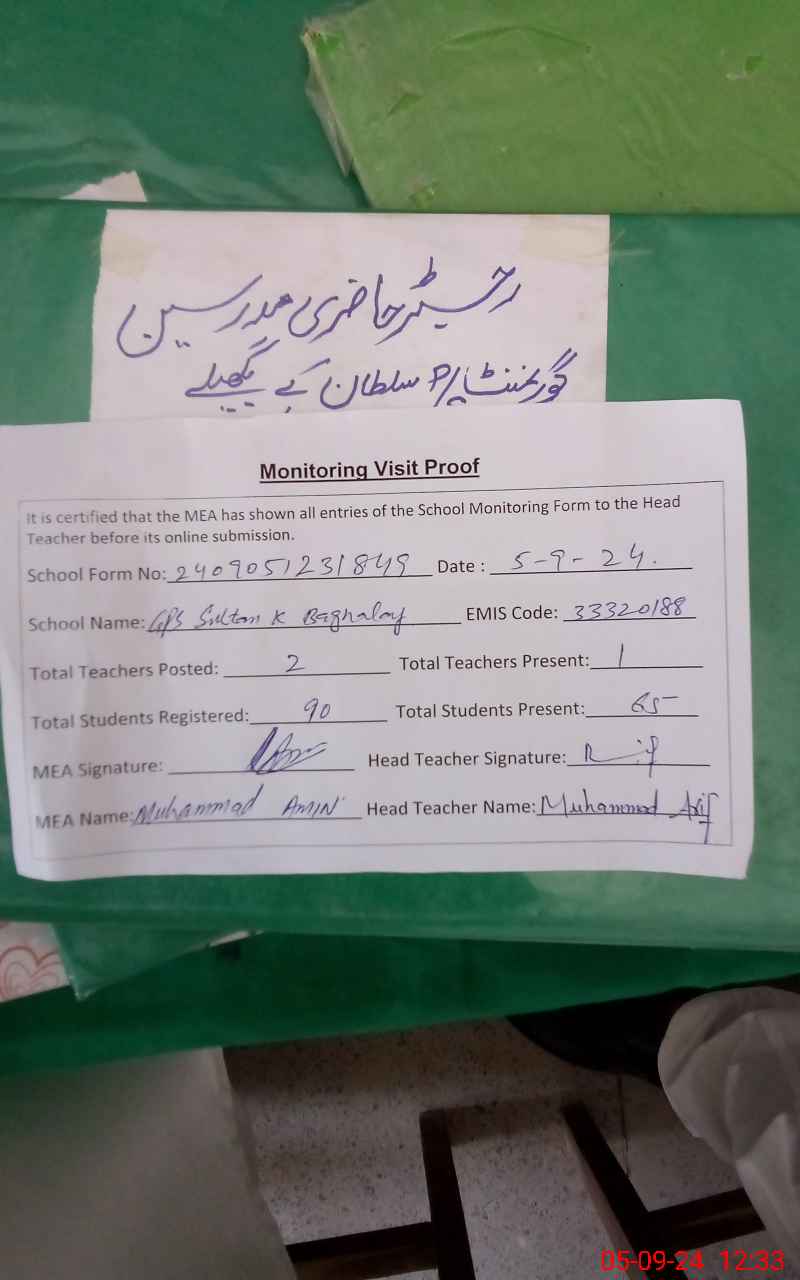 رجسٹر حاضری مدرسین
گورنمنٹ P/S سلطان کے بگھیلے
Monitoring Visit Proof
It is certified that the MEA has shown all entries of the School Monitoring Form to the Head
Teacher before its online submission.
School Form No: 2409051231849 Date : 5-9-24.
School Name: GPS Sultan K Baghalay EMIS Code: 33320188
Total Teachers Posted: 2 Total Teachers Present: 1
Total Students Registered: 90 Total Students Present: 65
MEA Signature: Head Teacher Signature:
MEA Name: Muhammad AMIN Head Teacher Name: Muhammad Asif
05-09-24 12:33